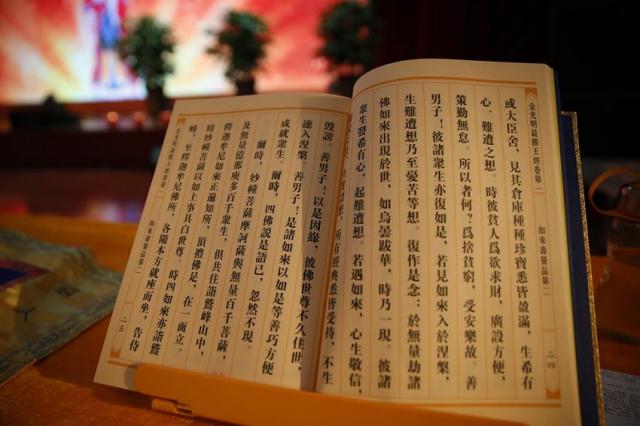 金光明最勝王經卷第一 如來壽量品第二 二四
或大臣舍，見其倉庫種種珍寶悉皆盈滿，生希有
心、難遭之想。時彼貧人爲欲求財，廣設方便，
策勤無怠。所以者何？爲捨貧窮，受安樂故。善
男子！彼諸衆生亦復如是，若見如來入於涅槃，
生難遭想乃至憂苦等想。復作是念：於無量劫諸
佛如來出現於世，如烏曇跋華，時乃一現。彼諸
衆生發希有心，起難遭想。若遇如來，心生敬信，
想，所有經典悉皆受持，不生
毀謗。善男子！以是因緣，彼佛世尊不久住世，
速入涅槃。善男子！是諸如來以如是等善巧方便
成就衆生。
爾時，四佛說是語已，忽然不現。
爾時，妙幢菩薩摩訶薩與無量百千菩薩，
及無量億那庾多百千衆生，俱共往詣鷲峰山中，
釋迦牟尼如來正遍知所，頂禮佛足，在一面立。
時妙幢菩薩以如上事具白世尊。時四如來亦詣鷲
峰，至釋迦牟尼佛所，各隨本方就座而坐，告侍
金光明最勝王經卷第一 如來壽量品第二 二五